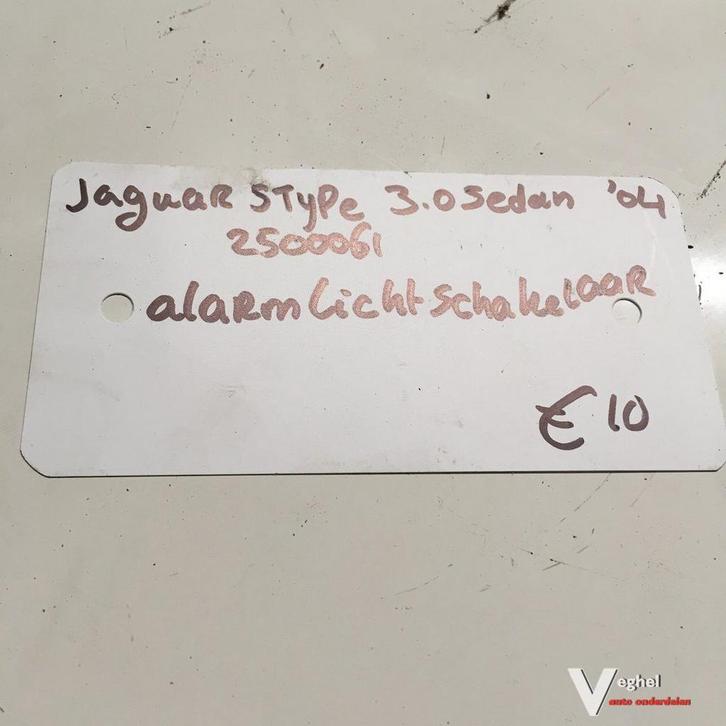 Jaguar SType 3.0 Sedan '04
2500061
alarmlichtschakelaar
€ 10
Veghel
auto onderdelen